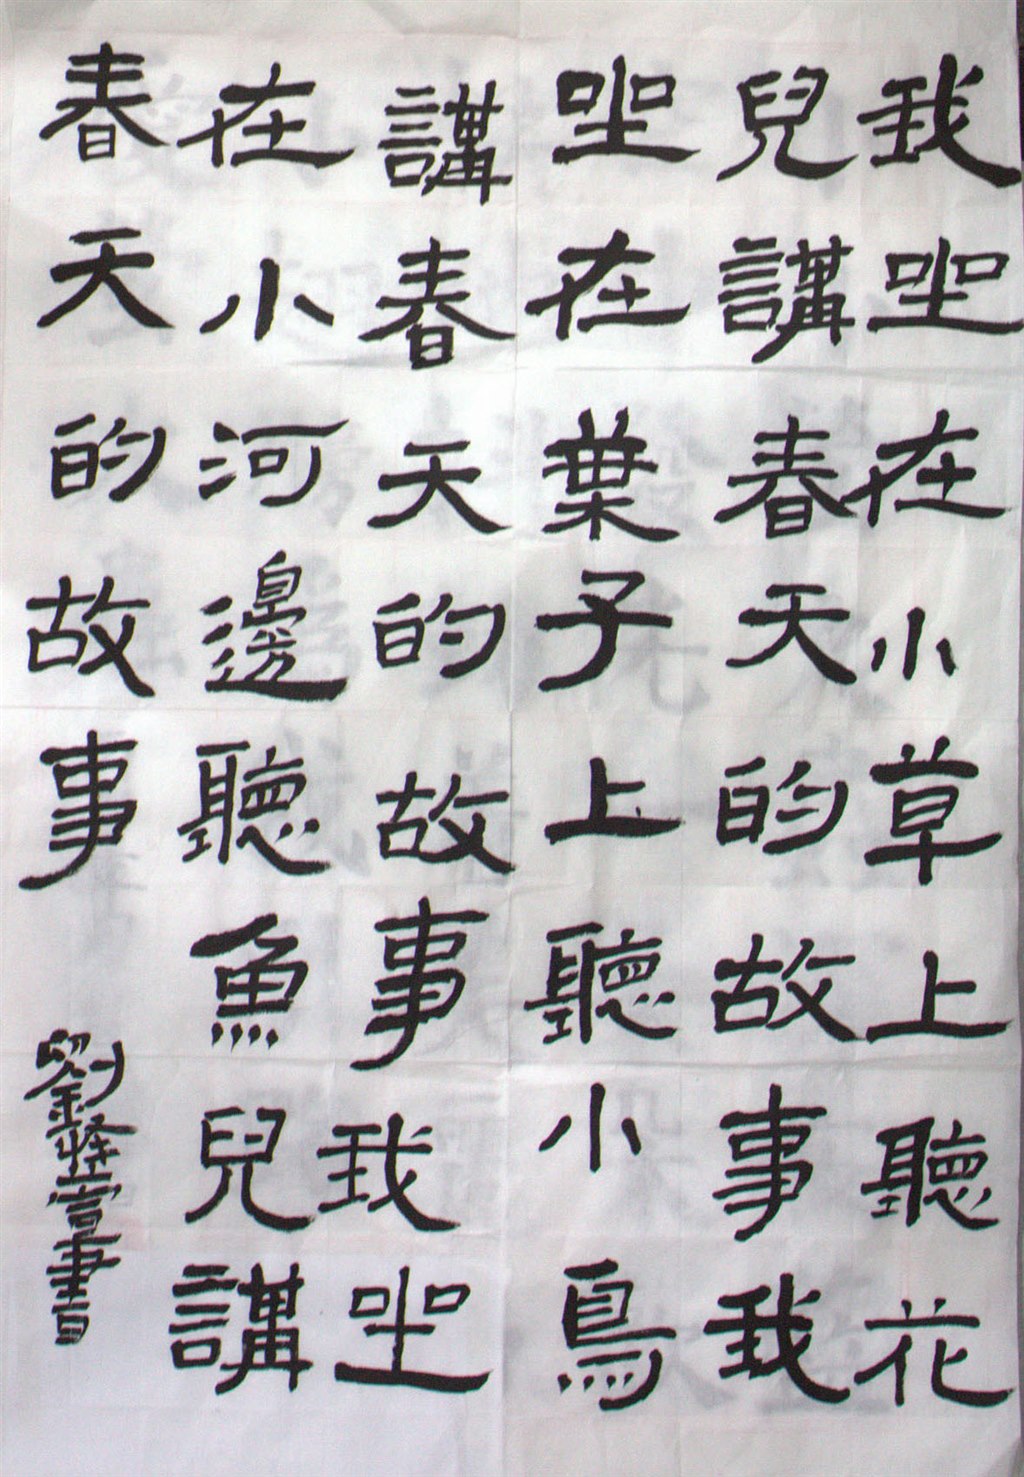 我坐在小草上聽花
兒講春天的故事我
坐在葉子上聽小鳥
講春天的故事我坐
在小河邊聽魚兒講
春天的故事
劉書